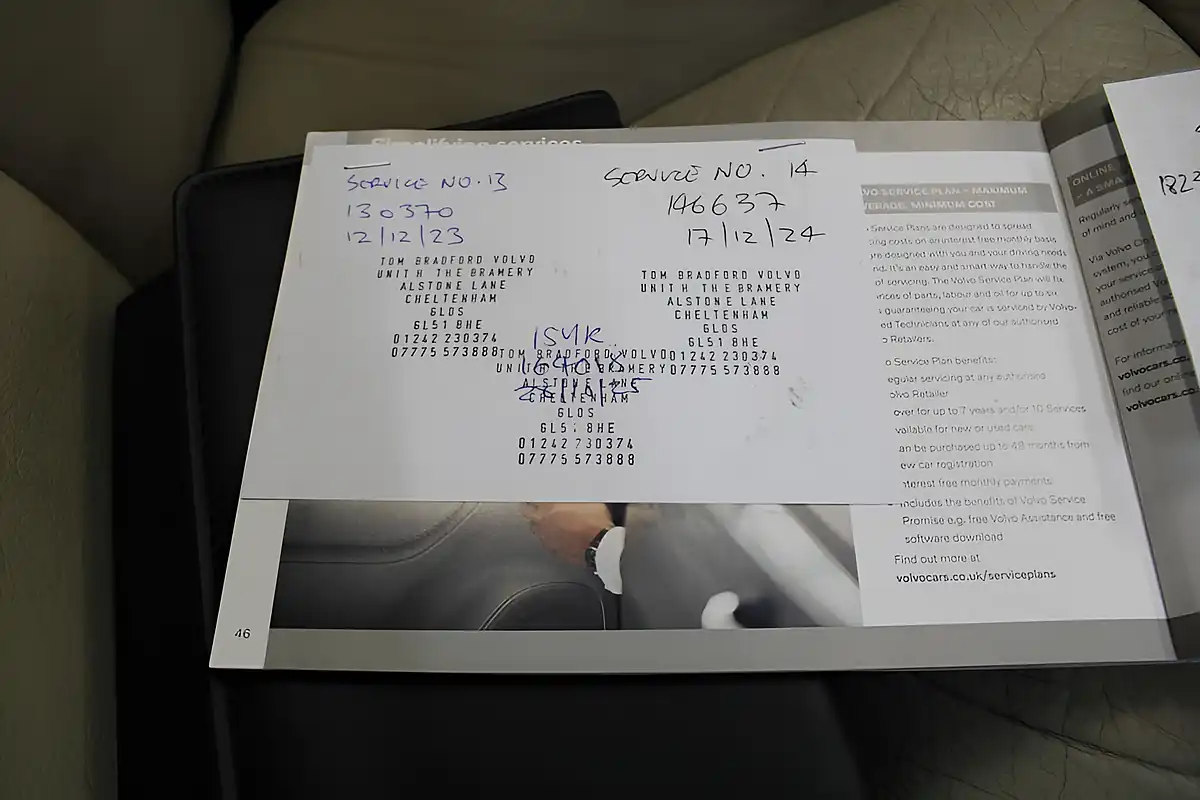 SERVICE NO. 13
130370
12/12/23
TOM BRADFORD VOLVO
UNIT H THE BRAMERY
ALSTONE LANE
CHELTENHAM
GLOS
GL51 8HE
01242 230374
07775 573888
SERVICE NO. 14
146637
17/12/24
TOM BRADFORD VOLVO
UNIT H THE BRAMERY
ALSTONE LANE
CHELTENHAM
GLOS
GL51 8HE
01242 230374
07775 573888
TOM BRADFORD VOLVO
UNIT H THE BRAMERY
ALSTONE LANE
CHELTENHAM
GLOS
GL51 8HE
01242 230374
07775 573888
VO SERVICE PLAN – MAXIMUM
VERAGE, MINIMUM COST
Service Plans are designed to spread
ing costs on an interest free monthly basis
are designed with you and your driving needs
nd. It's an easy and smart way to handle the
of servicing. The Volvo Service Plan will fix
rices of parts, labour and oil for up to six
guaranteeing your car is serviced by Volvo-
ed Technicians at any of our authorised
o Retailers.
o Service Plan benefits:
egular servicing at any authorised
olvo Retailer
over for up to 7 years and/or 10 Services
vailable for new or used cars
an be purchased up to 48 months from
ew car registration
nterest free monthly payments
includes the benefits of Volvo Service
Promise e.g. free Volvo Assistance and free
software download
Find out more at
volvocars.co.uk/serviceplans
46
ONLINE
– A SMA
Regularly se
of mind and
Via Volvo On
system, you c
your service a
authorised Vo
and reliable ac
cost of your re
For informatio
volvocars.co.
find our online
volvocars.co.
1822